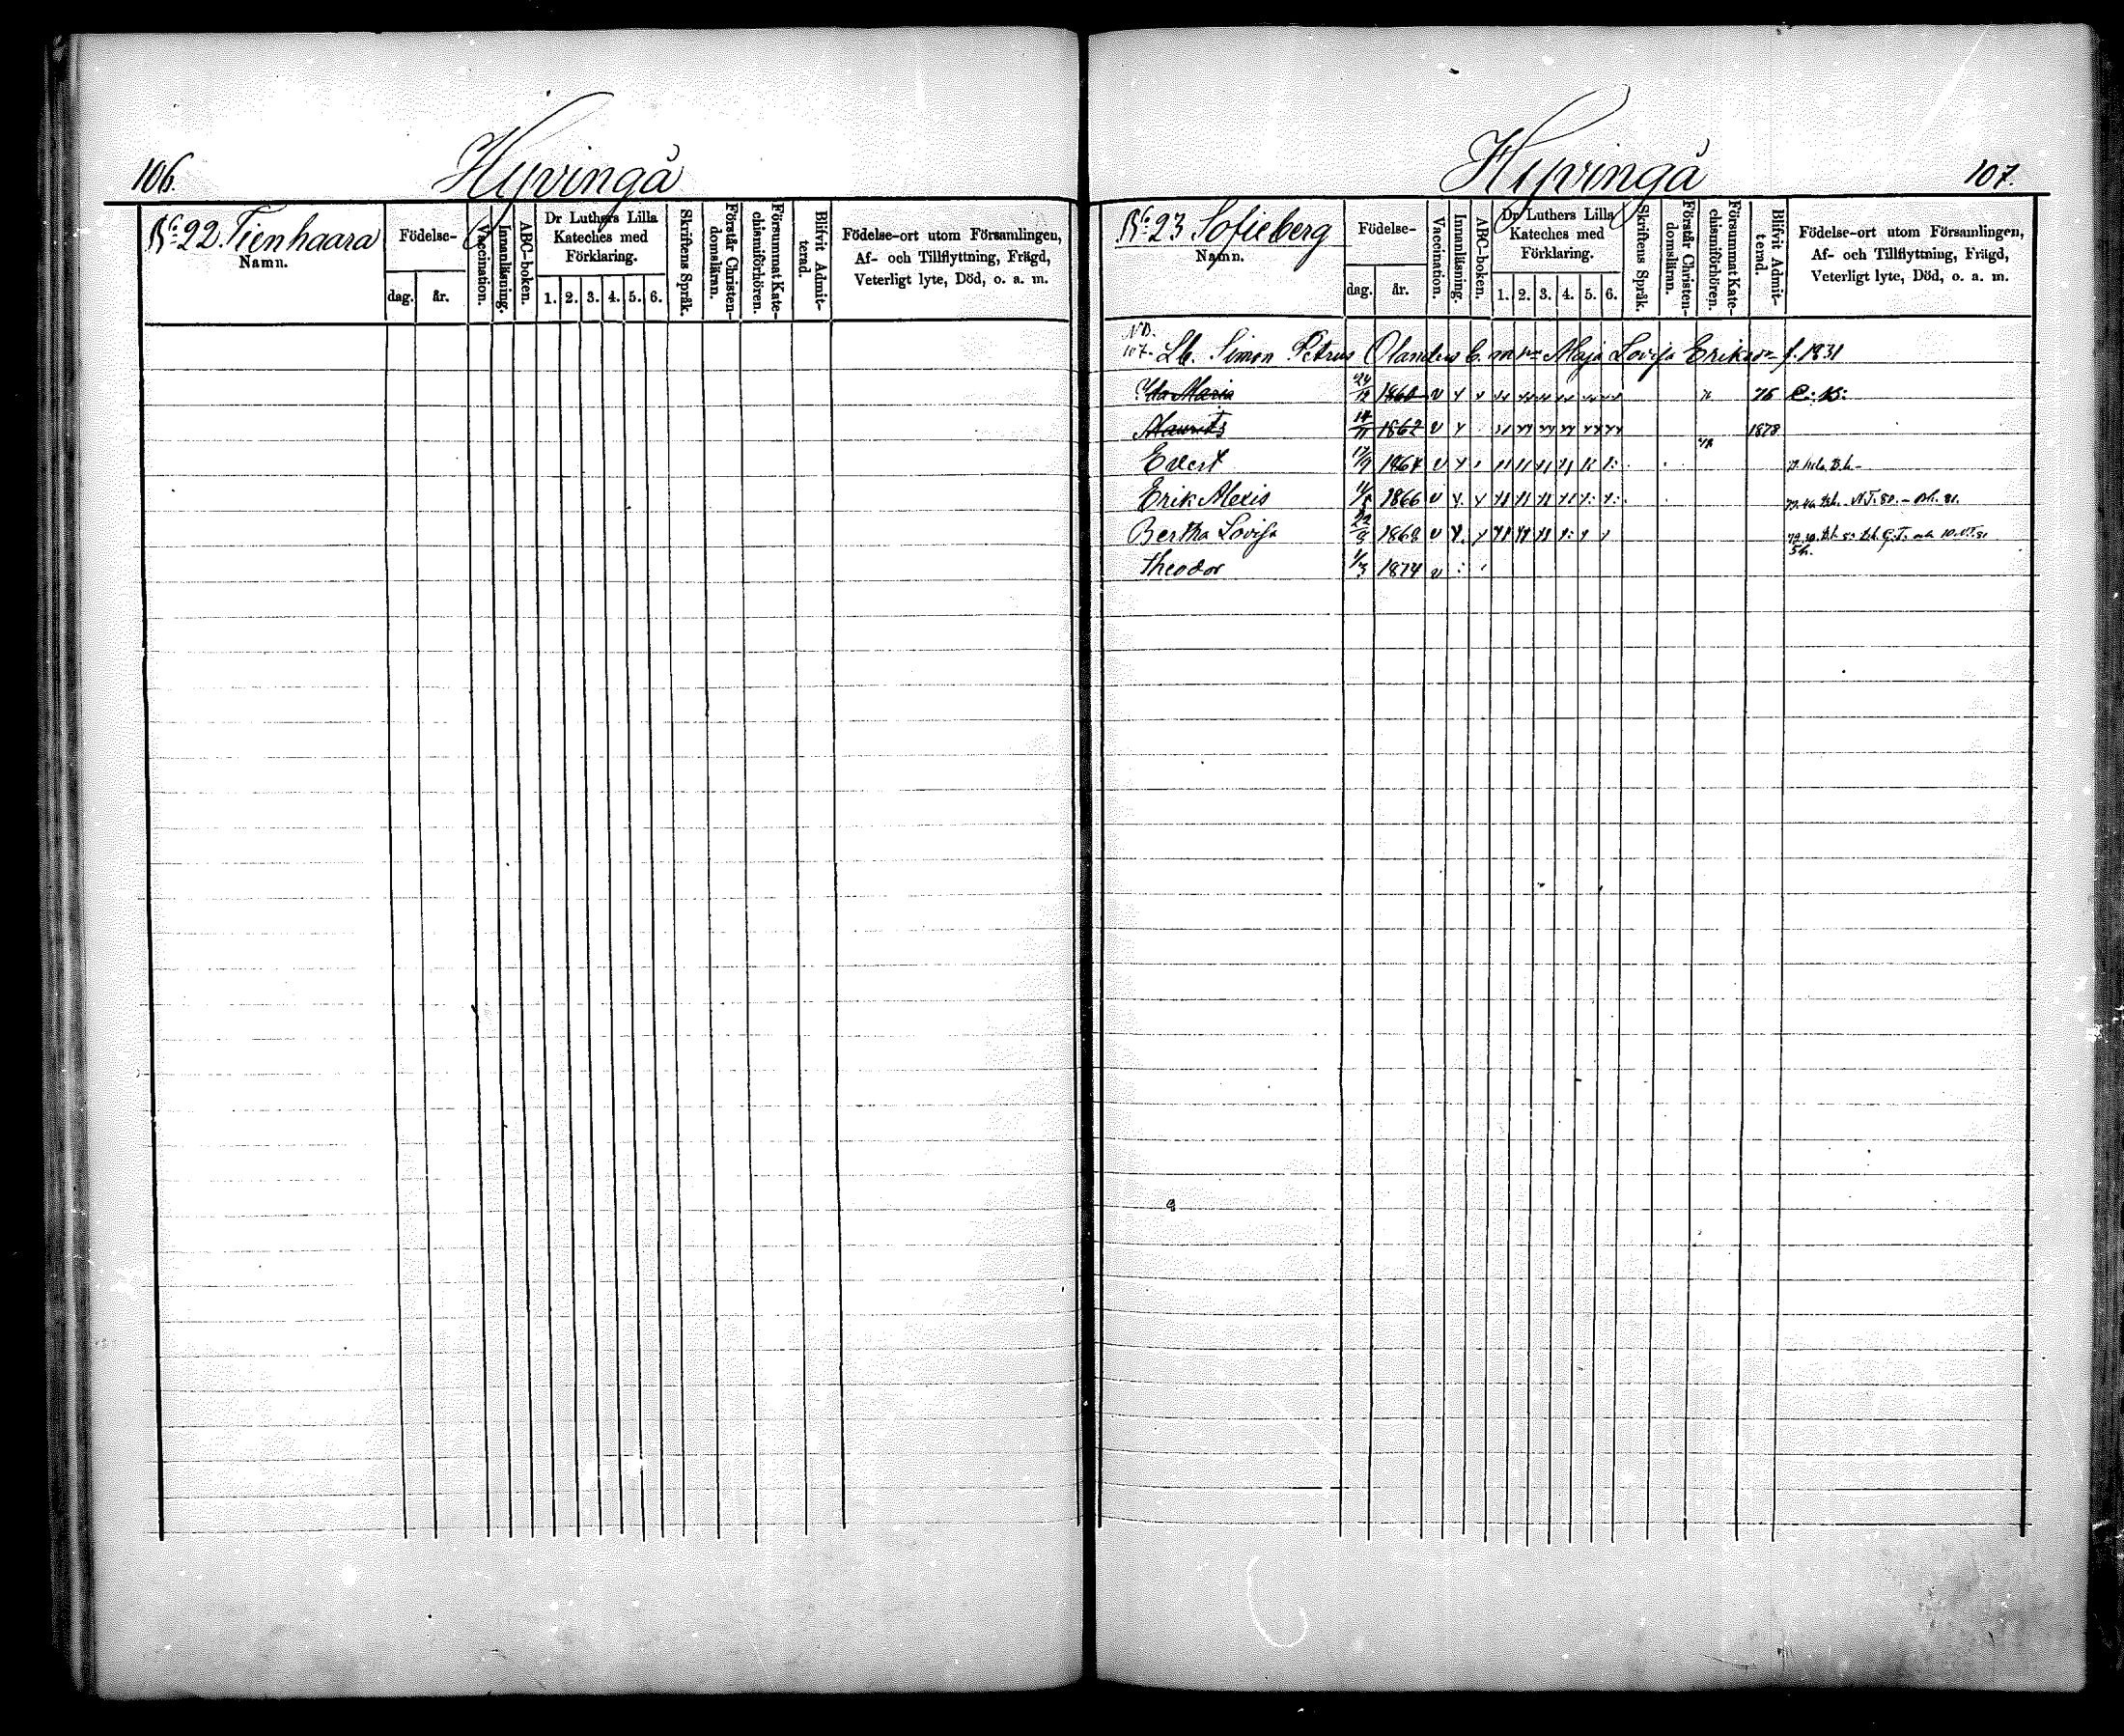 106.
Hyvingå
No 22. Tienhaara
Namn.
Födelse-
dag. år.
Vaccination.
Innanläsning.
ABC-boken.
Dr Luthers Lilla
Kateches med
Förklaring.
1. 2. 3. 4. 5. 6.
Skriftens Språk.
Förstår Christen-
domsläran.
Försummat Kate-
chismiförhören.
Blifvit Admit-
terad.
Födelse-ort utom Församlingen,
Af- och Tillflyttning, Frägd,
Veterligt lyte, Död, o. a. m.
Hyvingå
107.
No 23 Sofieberg
Namn.
Födelse-
dag. år.
Vaccination.
Innanläsning.
ABC-boken.
Dr Luthers Lilla
Kateches med
Förklaring.
1. 2. 3. 4. 5. 6.
Skriftens Språk.
Förstår Christen-
domsläran.
Försummat Kate-
chismiförhören.
Blifvit Admit-
terad.
Födelse-ort utom Församlingen,
Af- och Tillflyttning, Frägd,
Veterligt lyte, Död, o. a. m.
107. Lb. Simon Petrus Olanders b. m. Maja Lovisa f. 1831
Ida Maria 24/12 1860 v 76
Maurits 14/11 1862 v 1878
Evert 17/9 1864 v
Erik Alexis 1866 v
Bertha Lovisa 22/8 1868 v
Theodor 1/3 1874 v